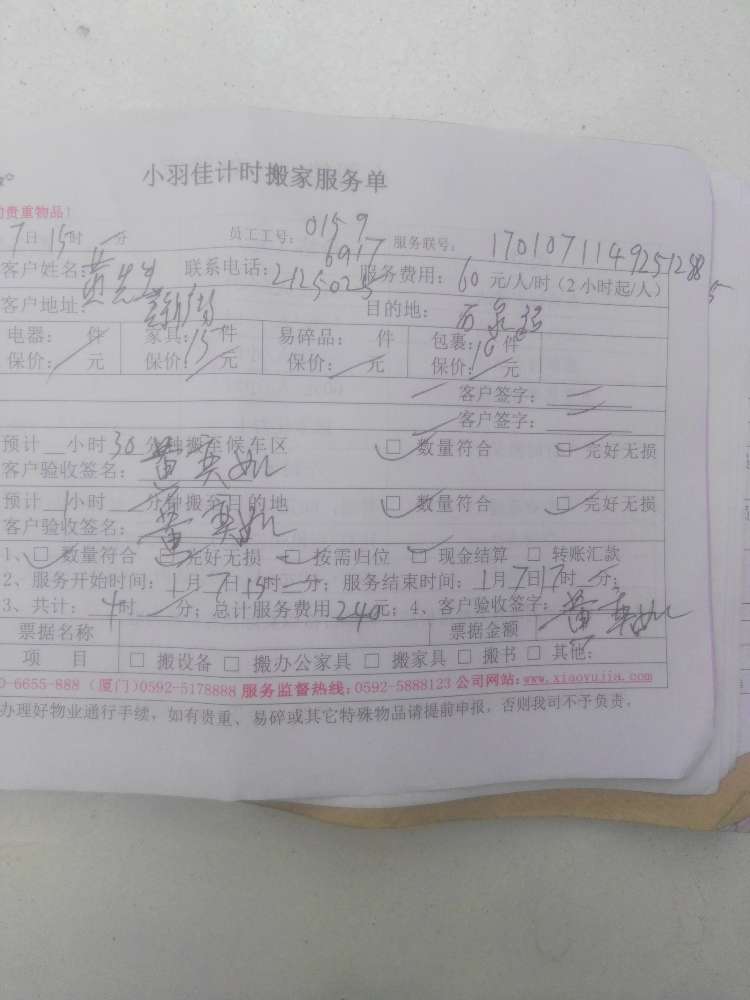 小羽佳计时搬家服务单
的贵重物品!
7日15时 分 员工工号: 0159 6917 服务联号: 17010711492512885
客户姓名: 黄先生 联系电话: 2125025 服务费用: 60 元/人/时(2小时起/人)
客户地址: 目的地:
电器: 件 家具: 15件 易碎品: 件 包裹: 10件
保价: 元 保价: 元 保价: 元 保价: 元
客户签字:
客户签字:
预计__小时30分钟搬至候车区 □ 数量符合 □ 完好无损
客户验收签名: 黄
预计1小时__分钟搬至目的地 □ 数量符合 □ 完好无损
客户验收签名: 黄
1、□ 数量符合 □ 完好无损 □ 按需归位 □ 现金结算 □ 转账汇款
2、服务开始时间: 1月7日15时 分; 服务结束时间: 1月7日17时 分;
3、共计: 4时 分; 总计服务费用240元; 4、客户验收签字: 黄
票据名称 票据金额
项 目 □ 搬设备 □ 搬办公家具 □ 搬家具 □ 搬书 □ 其他:
0-6655-888 (厦门)0592-5178888 服务监督热线:0592-5888123 公司网站:www.xiaoyujia.com
办理好物业通行手续, 如有贵重、易碎或其它特殊物品请提前申报, 否则我司不予负责。